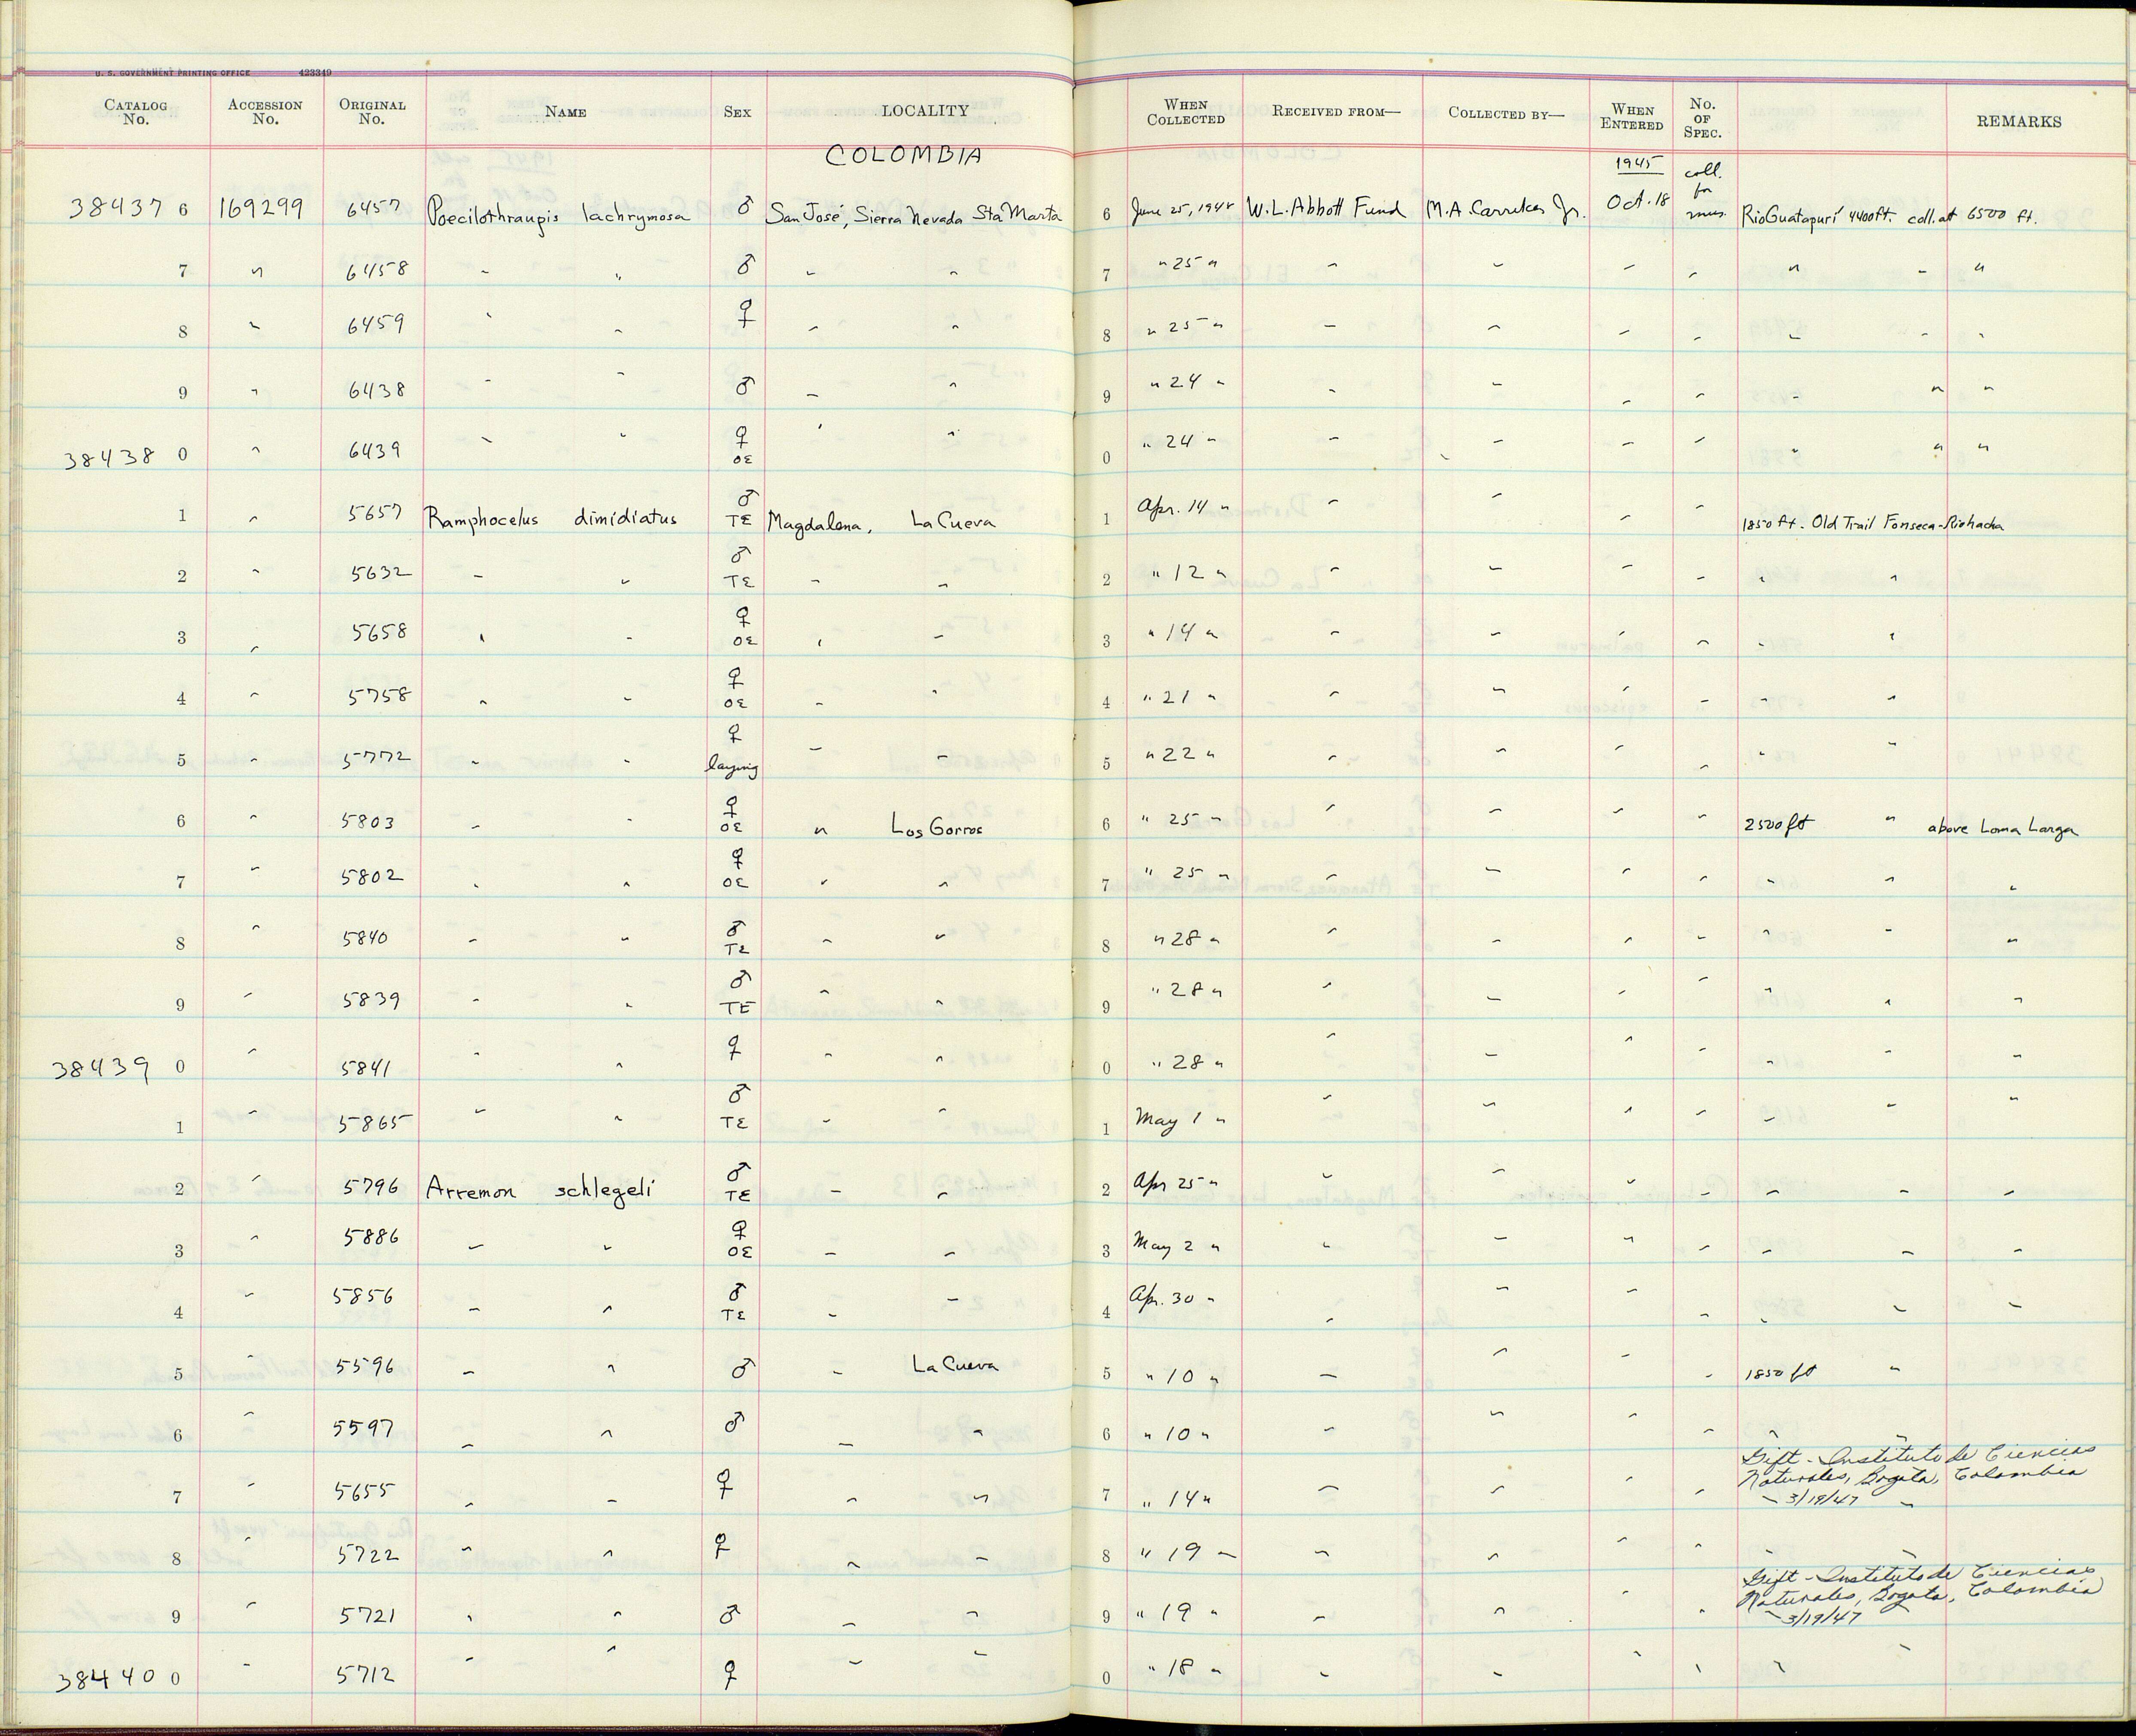 U. S. GOVERNMENT PRINTING OFFICE 423349
CATALOG No. ACCESSION No. ORIGINAL No. NAME SEX LOCALITY WHEN COLLECTED RECEIVED FROM— COLLECTED BY— WHEN ENTERED No. OF SPEC. REMARKS
COLOMBIA 1945 coll. for mus.
38437 6 169299 6457 Poecilothraupis lachrymosa ♂ San José, Sierra Nevada Sta Marta 6 June 25, 1945 W.L. Abbott Fund M.A. Carriker Jr. Oct. 18 Rio Guatapurí 4400ft. coll. at 6500 ft.
7 " 6458 " " ♂ " " 7 " 25 " " " " " " " "
8 " 6459 " " ♀ " " 8 " 25 " " " " " " " "
9 " 6438 " " ♂ " " 9 " 24 " " " " " " " "
38438 0 " 6439 " " ♀ OE " " 0 " 24 " " " " " " " "
1 " 5657 Ramphocelus dimidiatus ♂ TE Magdalena, La Cueva 1 Apr. 14 " " " " " 1850 ft. Old Trail Fonseca-Riohacha
2 " 5632 " " ♂ TE " " 2 " 12 " " " " " " "
3 " 5658 " " ♀ OE " " 3 " 14 " " " " " " "
4 " 5758 " " ♀ OE " " 4 " 21 " " " " " " "
5 " 5772 " " ♀ laying " " 5 " 22 " " " " " " "
6 " 5803 " " ♀ OE " Los Gorros 6 " 25 " " " " " 2500 ft " above Loma Larga
7 " 5802 " " ♀ OE " " 7 " 25 " " " " " " " "
8 " 5840 " " ♂ TE " " 8 " 28 " " " " " " " "
9 " 5839 " " ♂ TE " " 9 " 28 " " " " " " " "
38439 0 " 5841 " " ♀ " " 0 " 28 " " " " " " " "
1 " 5865 " " ♂ TE " " 1 May 1 " " " " " " " "
2 " 5796 Arremon schlegeli ♂ TE " " 2 Apr 25 " " " " " " " "
3 " 5886 " " ♀ OE " " 3 May 2 " " " " " " " "
4 " 5856 " " ♂ TE " " 4 Apr. 30 " " " " " " " "
5 " 5596 " " ♂ " La Cueva 5 " 10 " " " " " 1850 ft "
6 " 5597 " " ♂ " " 6 " 10 " " " " " " "
7 " 5655 " " ♀ " " 7 " 14 " " " " " Gift - Instituto de Ciencias
Naturales, Bogota, Colombia
" 3/19/47 "
8 " 5722 " " ♀ " " 8 " 19 " " " " " " "
9 " 5721 " " ♂ " " 9 " 19 " " " " " Gift - Instituto de Ciencias
Naturales, Bogota, Colombia
" 3/19/47 "
38440 0 " 5712 " " ♀ " " 0 " 18 " " " " " " "